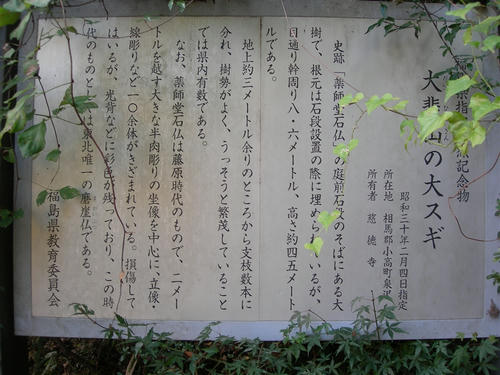 指定天然記念物
大悲山の大スギ
昭和三十年二月四日指定
所在地 相馬郡小高町泉沢
所有者 慈徳寺
史跡「薬師堂石仏」の庭前石段のそばにある大
樹で、根元は石段設置の際に埋められているが、
目通り幹周り八・六メートル、高さ約四五メート
ルである。
地上約三メートル余りのところから支枝数本に
分れ、樹勢がよく、うっそうと繁茂していること
では県内有数である。
なお、薬師堂石仏は藤原時代のもので、二メー
トルを越す大きな半肉彫りの坐像を中心に、立像・
線彫りなど一〇余体がきざまれている。損傷して
はいるが、光背などに彩色が残っており、この時
代のものとしては東北唯一の磨崖仏である。
福島県教育委員会